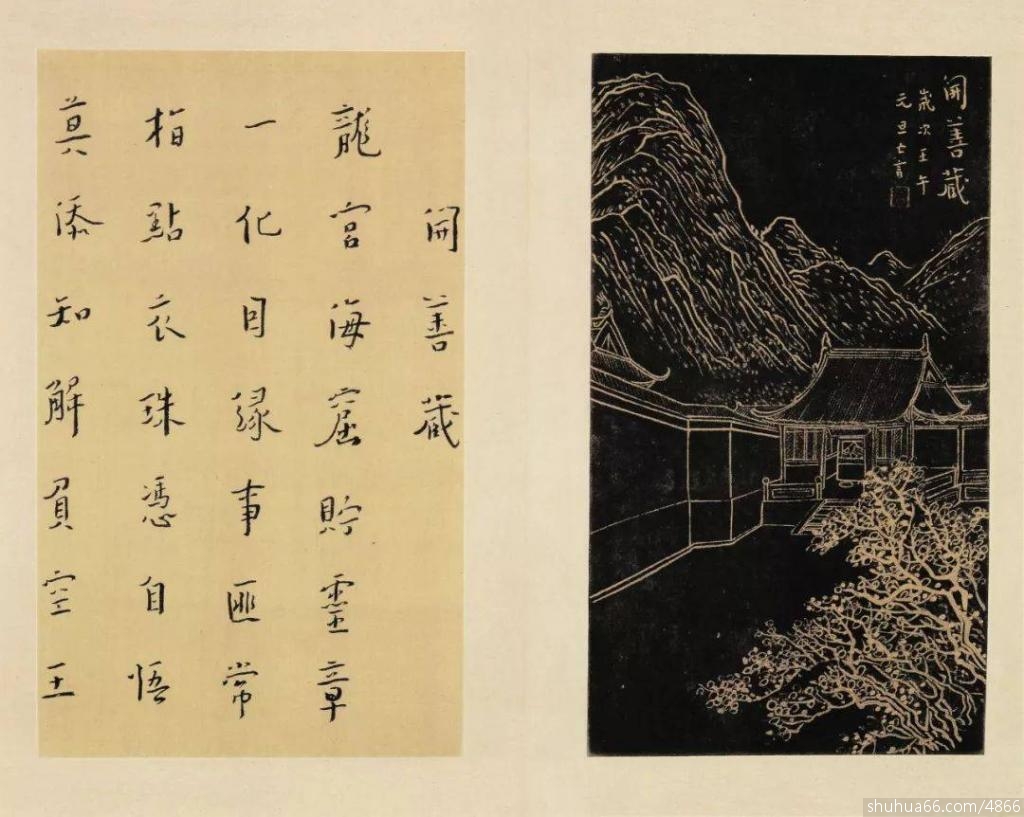 開善藏
龍宮海窟貯靈章
一化因緣事匪常
指點衣珠憑自悟
莫添知解負空王
開善藏
歲次壬午
元旦
shuhua66.com/4866